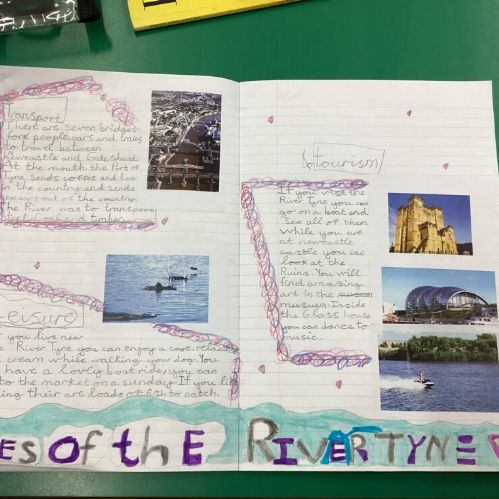 Transport
There are seven bridges
for people, cars and trains
to travel between
Newcastle and Gateshead
At the mouth, the Port of
Tyne, sends coffee and tea
in the country and sends
cars out of the country.
The River was to transport
coal and timber.
Leisure
you live near
River Tyne you can enjoy a cool, relaxing
cream while walking your dog. You
have a lovly boat ride, you can
to the market on a sunday. If you like
ing their are loads of fish to catch.
tourism
If you visit the
River Tyne you can
go on a boat and
See all of them
While you are
at newcastle
castle you can
look at the
Ruins. You will
find amazing
art in the
museum. Inside
the Glass house
you can dance to
music.
es of the River Tyne